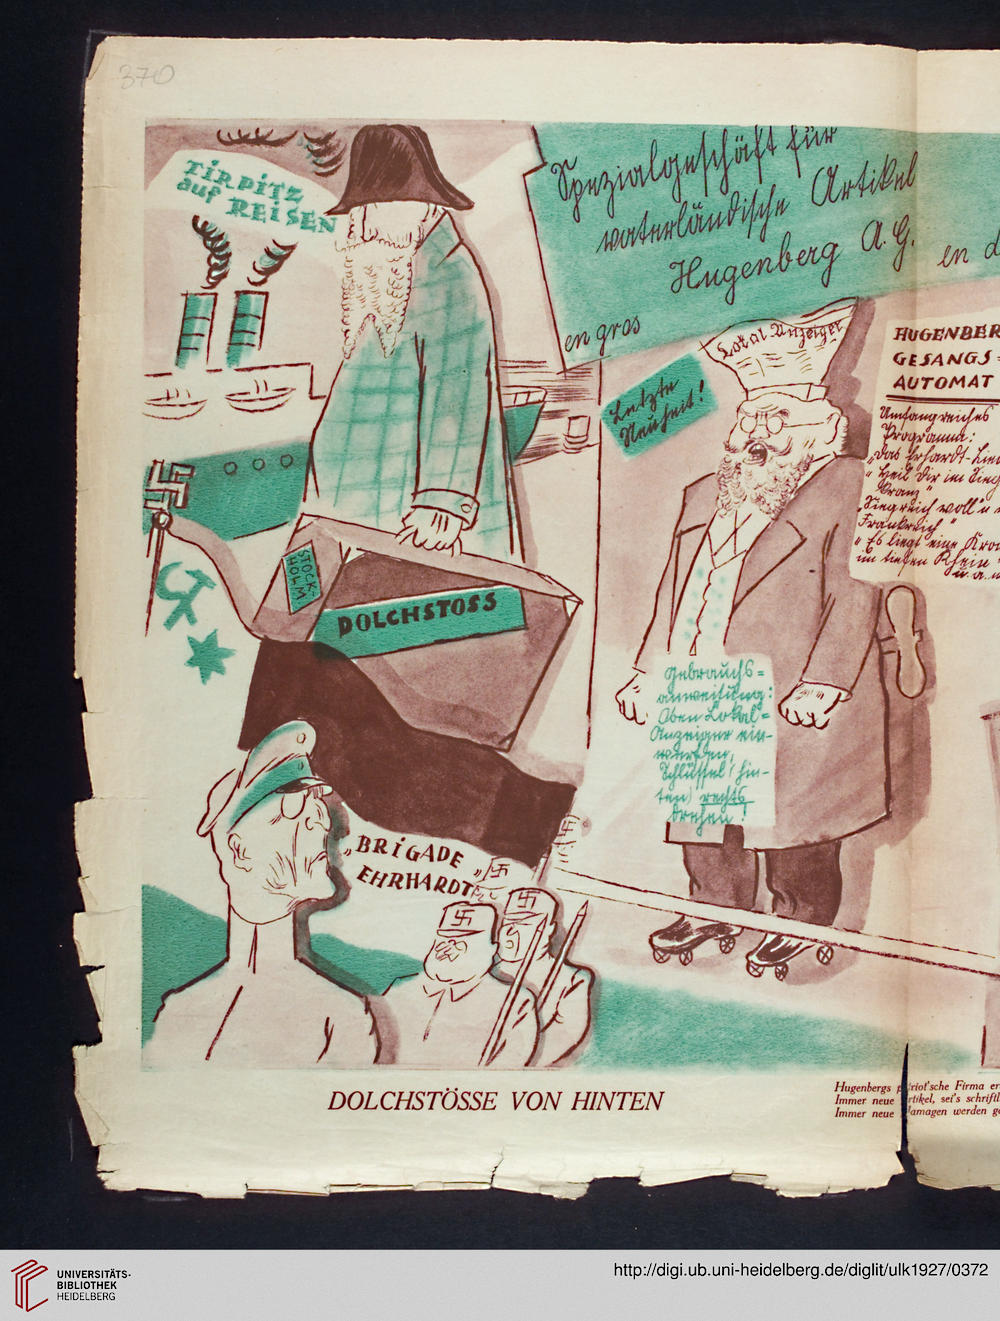 370
TIRPITZ
auf REISEN
Spezialgeschäft für
vaterländische Artikel
Hugenberg A.G.
en gros
en d
Lokal-Anzeiger
Letzte
Neuheit!
HUGENBER
GESANGS=
AUTOMAT
Umfangreiches
Programm:
„Das Erhardt-Lie
"Heil dir im Sieg
Kranz"
„Siegreich woll'n
Frankreich"
"Es liegt eine Kro
im tiefen Rhein"
u. a. m
STOCK-
HOLM
DOLCHSTOSS
Gebrauchs=
anweisung:
Oben Lokal=
Anzeiger ein-
werfen,
Schlüssel (hin-
ten) rechts
drehen!
„BRIGADE
EHRHARDT"
DOLCHSTÖSSE VON HINTEN
Hugenbergs patriot'sche Firma er
Immer neue Artikel, sei's schriftl
Immer neue Damagen werden ge
UNIVERSITÄTS-
BIBLIOTHEK
HEIDELBERG
http://digi.ub.uni-heidelberg.de/diglit/ulk1927/0372